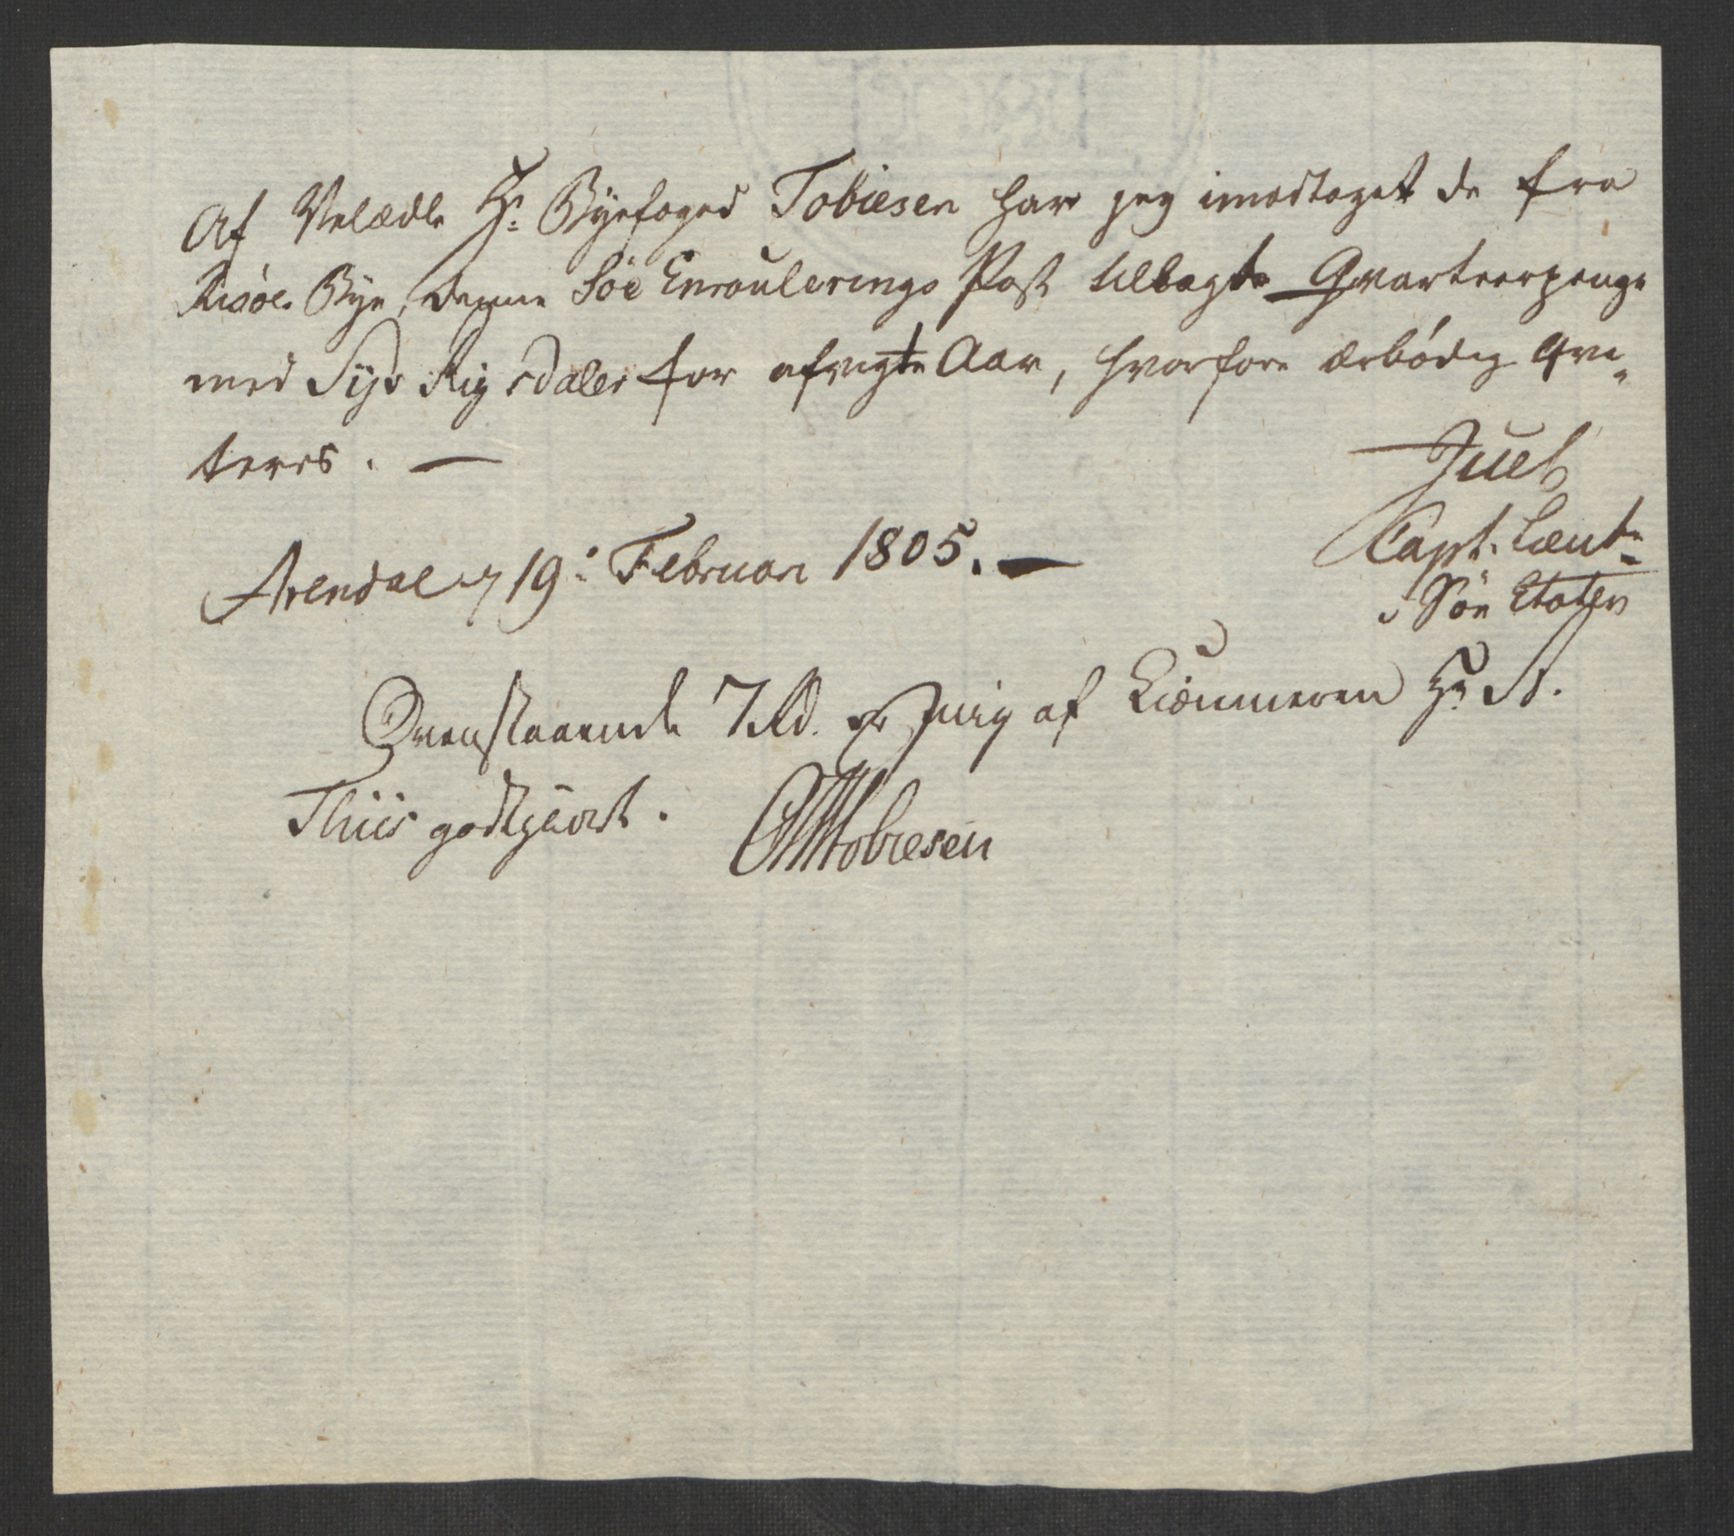 Af Velædle Hr: Byefoged Tobiesen har jeg imodtaget de fra
Risøer Bye, denne Söe Enroulerings Post tillagte Qvarteerpenge
med Syv Rigsdaler for afvigte Aar, hvorfore ærbödig Qvi-
teres. —
Juel
Capt. Lieut:
i Söe Etaten
Arendal d 19: Februari 1805. —
Ovenstaaende 7 Rd. er mig af Kiæmneren Hr N.
Thiis godtgiort.
Tobiesen